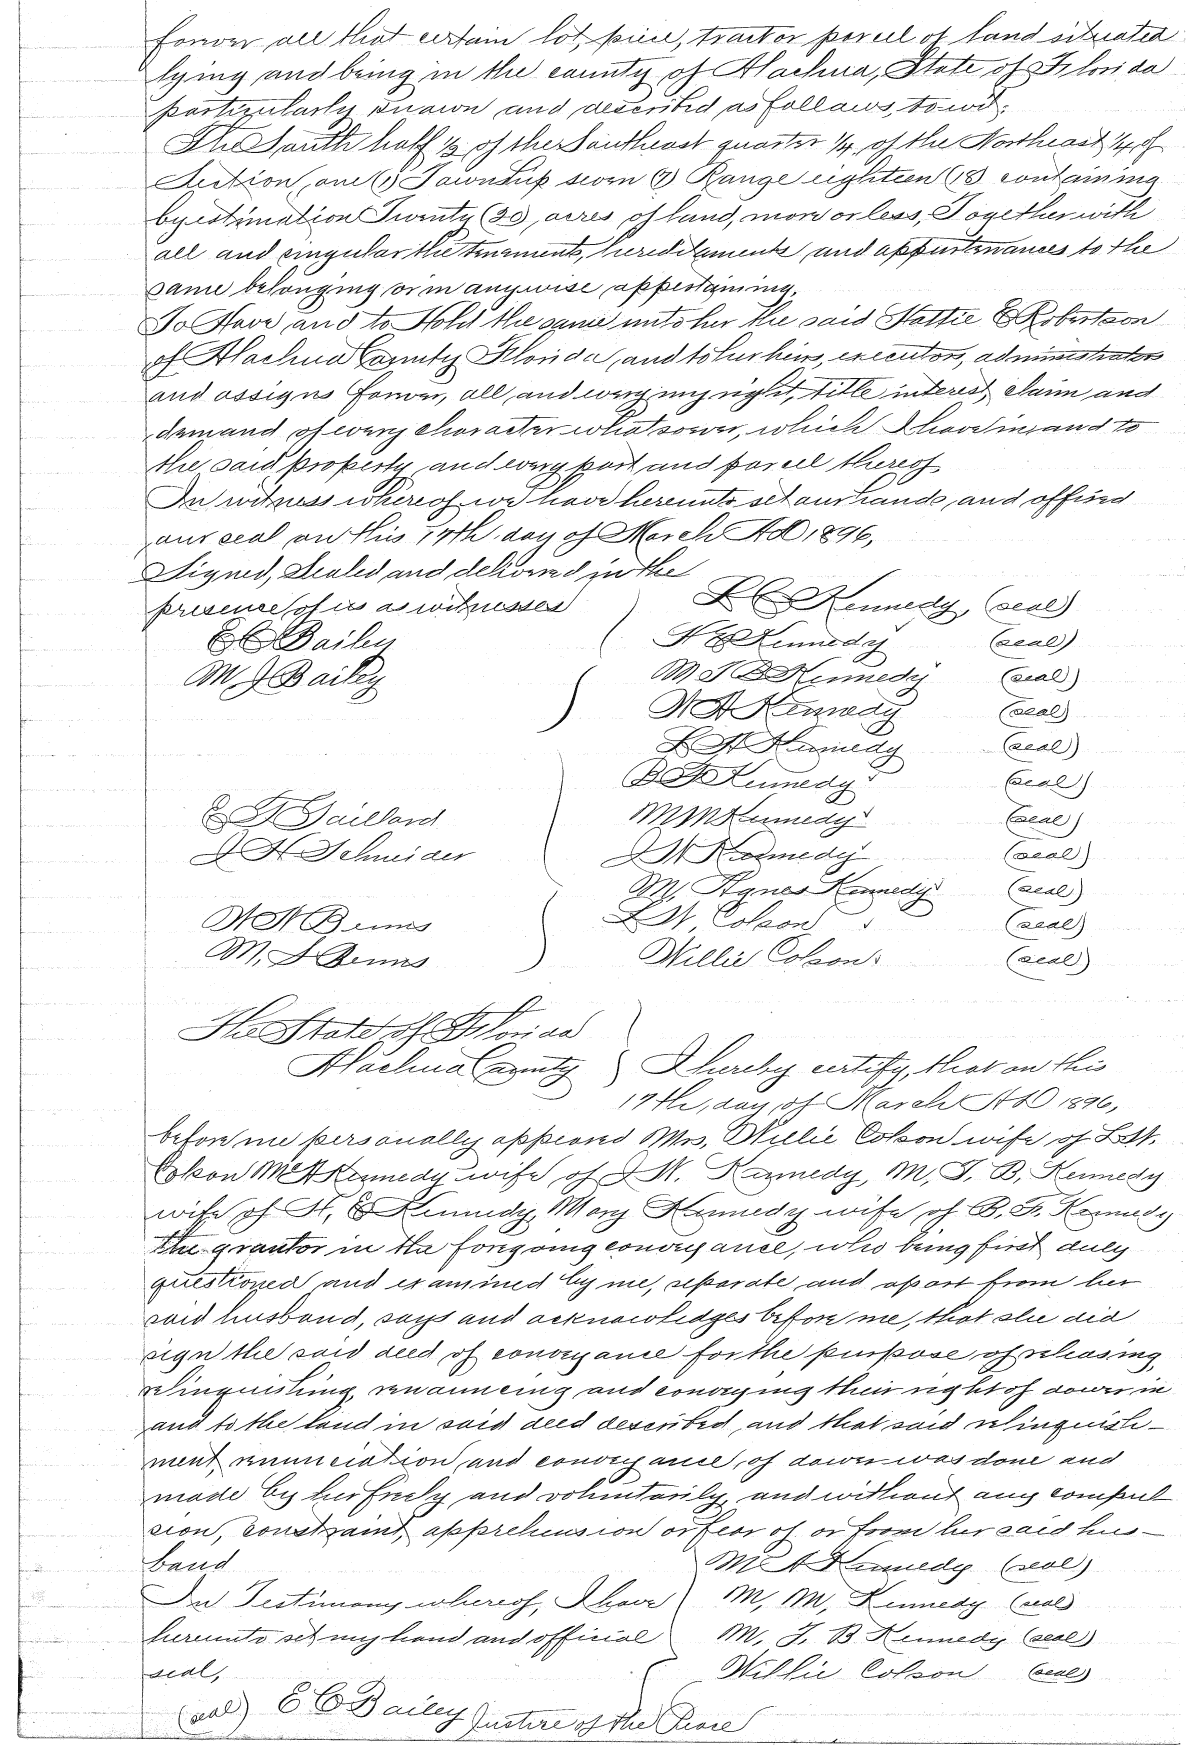 forever all that certain lot, piece, tract or parcel of land situated
lying and being in the county of Alachua, State of Florida
particularly known and described as follows, to wit:
The South half ½ of the Southeast quarter ¼ of the Northeast ¼ of
Section, one (1) Township seven (7) Range eighteen (18) containing
by estimation Twenty (20) acres of land, more or less, Together with
all and singular the tenements, hereditaments and appurtenances to the
same belonging or in anywise appertaining.
To Have and to Hold the same unto her the said Hattie E Robertson
of Alachua County Florida, and to her heirs, executors, administrators
and assigns forever, all, and every my right, title interest claim and
demand of every character whatsoever, which I have in, and to
the said property and every part and parcel thereof
In witness whereof we have hereunto set our hands, and affixed
our seal on this 17th day of March AD 1896,
Signed, Sealed and delivered in the
presence of us as witnesses
L C Kennedy, (seal)
E C Bailey H E Kennedy (seal)
M J Bailey M J B Kennedy (seal)
W A Kennedy (seal)
L H Kennedy (seal)
B F Kennedy (seal)
E T Gaillard M M Kennedy (seal)
J H Schneider J W Kennedy (seal)
M, Agnes Kennedy (seal)
W N Benns L W Colson (seal)
M, J Benns Willie Colson (seal)
The State of Florida
Alachua County I hereby certify, that on this
17th, day of March AD 1896,
before me personally appeared Mrs, Willie Colson wife of L W.
Colson M A Kennedy wife of J W. Kennedy, M, J, B, Kennedy
wife of H, E Kennedy, Mary Kennedy wife of B, F, Kennedy
the grantor in the foregoing conveyance, who being first duly
questioned and examined by me, separate and apart from her
said husband, says and acknowledges before me, that she did
sign the said deed of conveyance for the purpose of releasing,
relinquishing, renouncing and conveying their right of dower in
and to the land in said deed described, and that said relinquish-
ment, renunciation, and conveyance, of dower was done and
made by her freely and voluntarily, and without any compul
sion, constraint, apprehension or fear of or from her said hus-
band M A Kennedy (seal)
In Testimony whereof, I have M, M, Kennedy (seal)
hereunto set my hand and official M, J, B Kennedy (seal)
seal, Willie Colson (seal)
(seal) E C Bailey Justice of the Peace